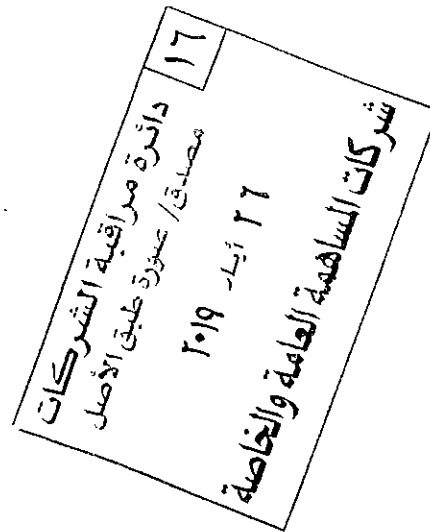 ١٦
دائرة مراقبة الشركات
مصدق/ صورة طبق الأصل
٢٦ أيار ٢٠١٩
شركات المساهمة العامة والخاصة